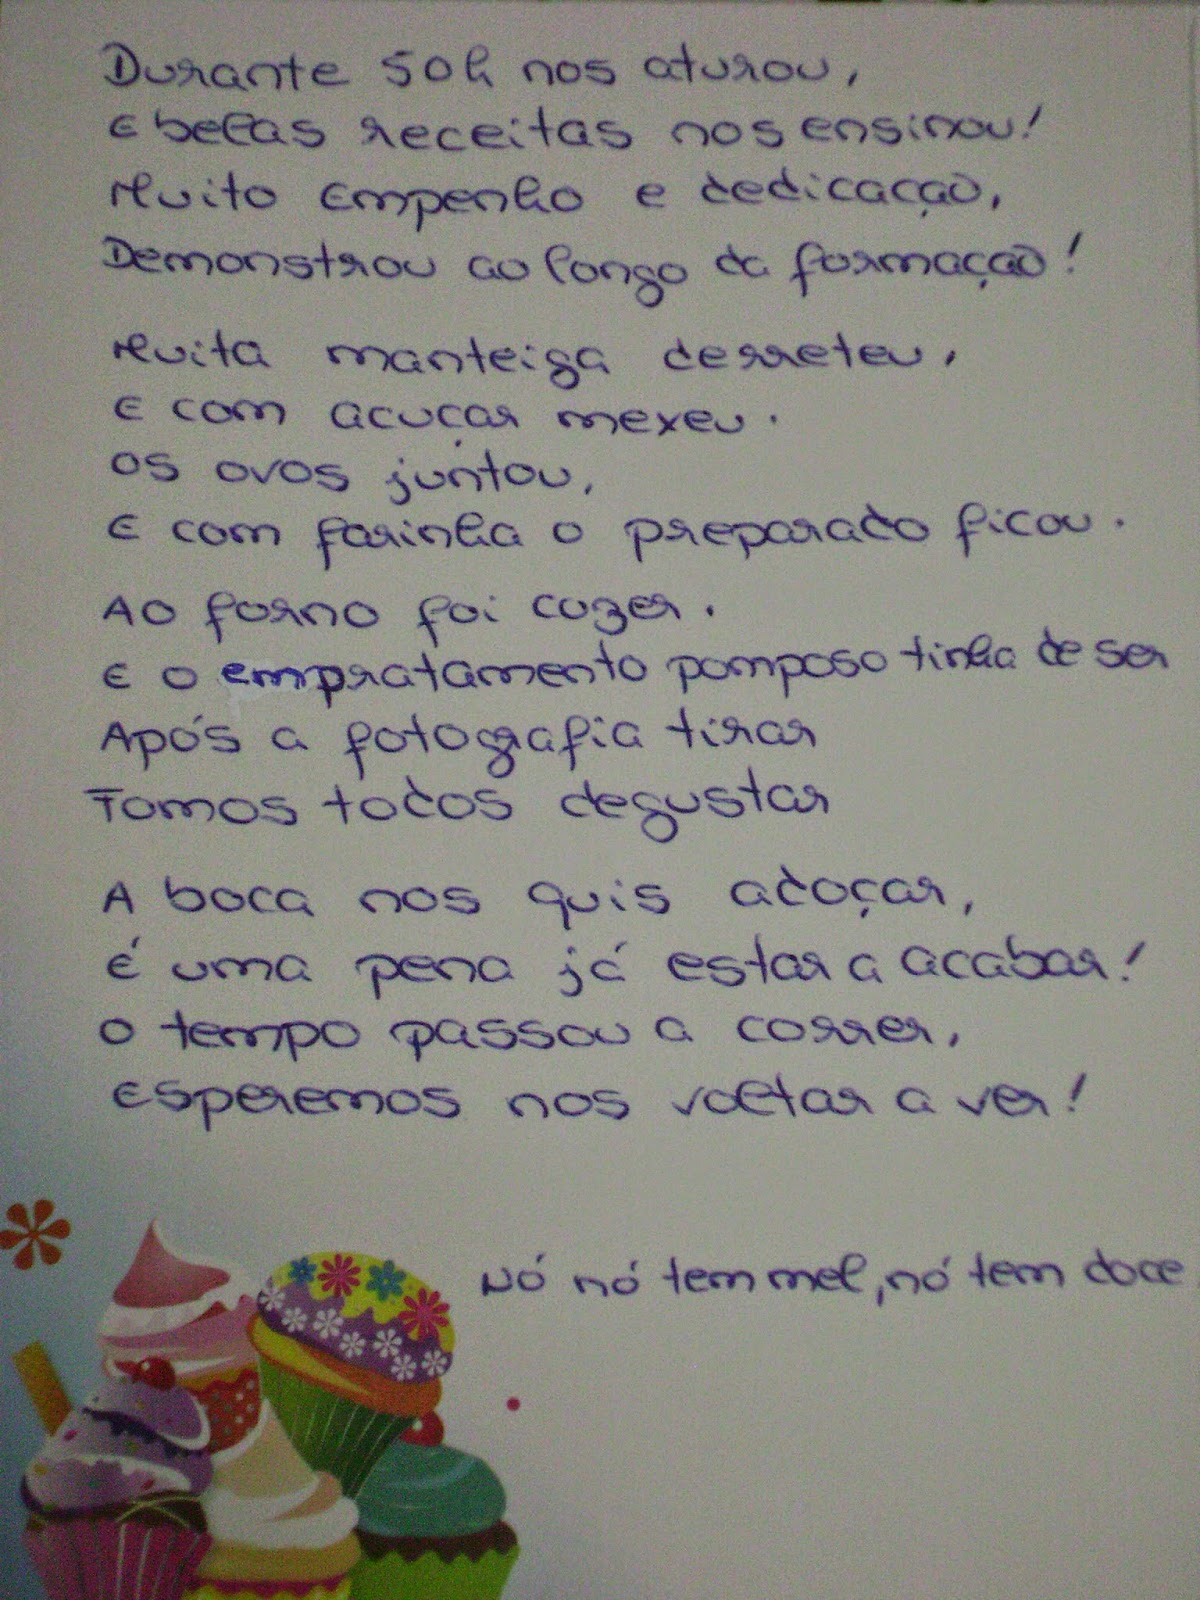 Durante 50h nos aturou,
E belas receitas nos ensinou!
Muito Empenho e dedicação,
Demonstrou ao longo da formação!
Muita manteiga derreteu,
E com acuçar mexeu.
Os ovos juntou,
E com farinha o preparado ficou.
Ao forno foi cozer.
E o empratamento pomposo tinha de ser
Após a fotografia tirar
Fomos todos degustar
A boca nos quis adoçar,
É uma pena já estar a acabar!
O tempo passou a correr,
Esperemos nos voltar a ver!
Nó nó tem mel, nó tem doce